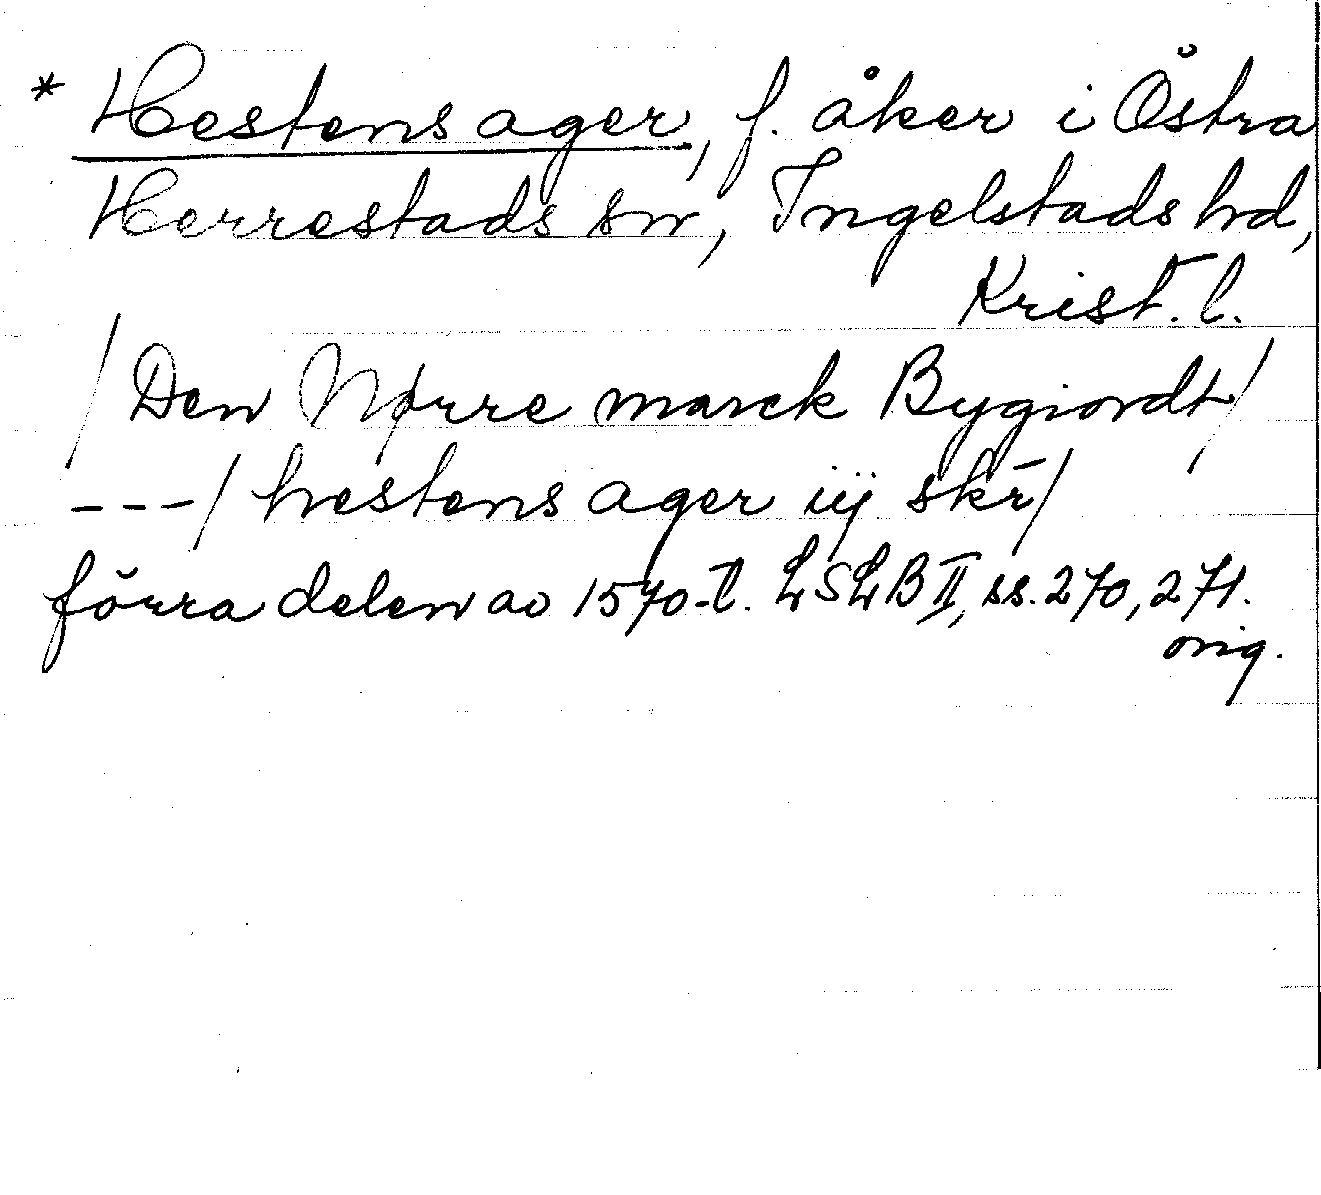 * Hestens ager, f. åker i Östra
Herrestads sn, Ingelstads hd,
Krist. l.
/ Den Nørre marck Bygiordt /
---/ hestens ager iij skr̄ /
förra delen av 1570-t. LSLB II, ss. 270, 271.
orig.